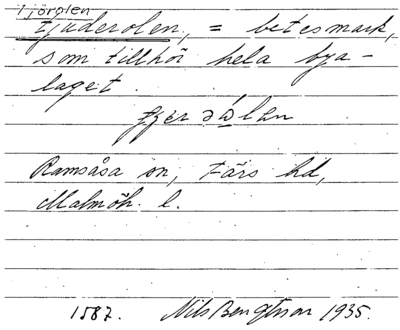 Tjörplen
tjuderolen, = betesmark,
som tillhör hela bya-
laget.
Ramsåsa sn, Färs hd,
Malmöh. l.
1587. Nils Bengtsson 1935.